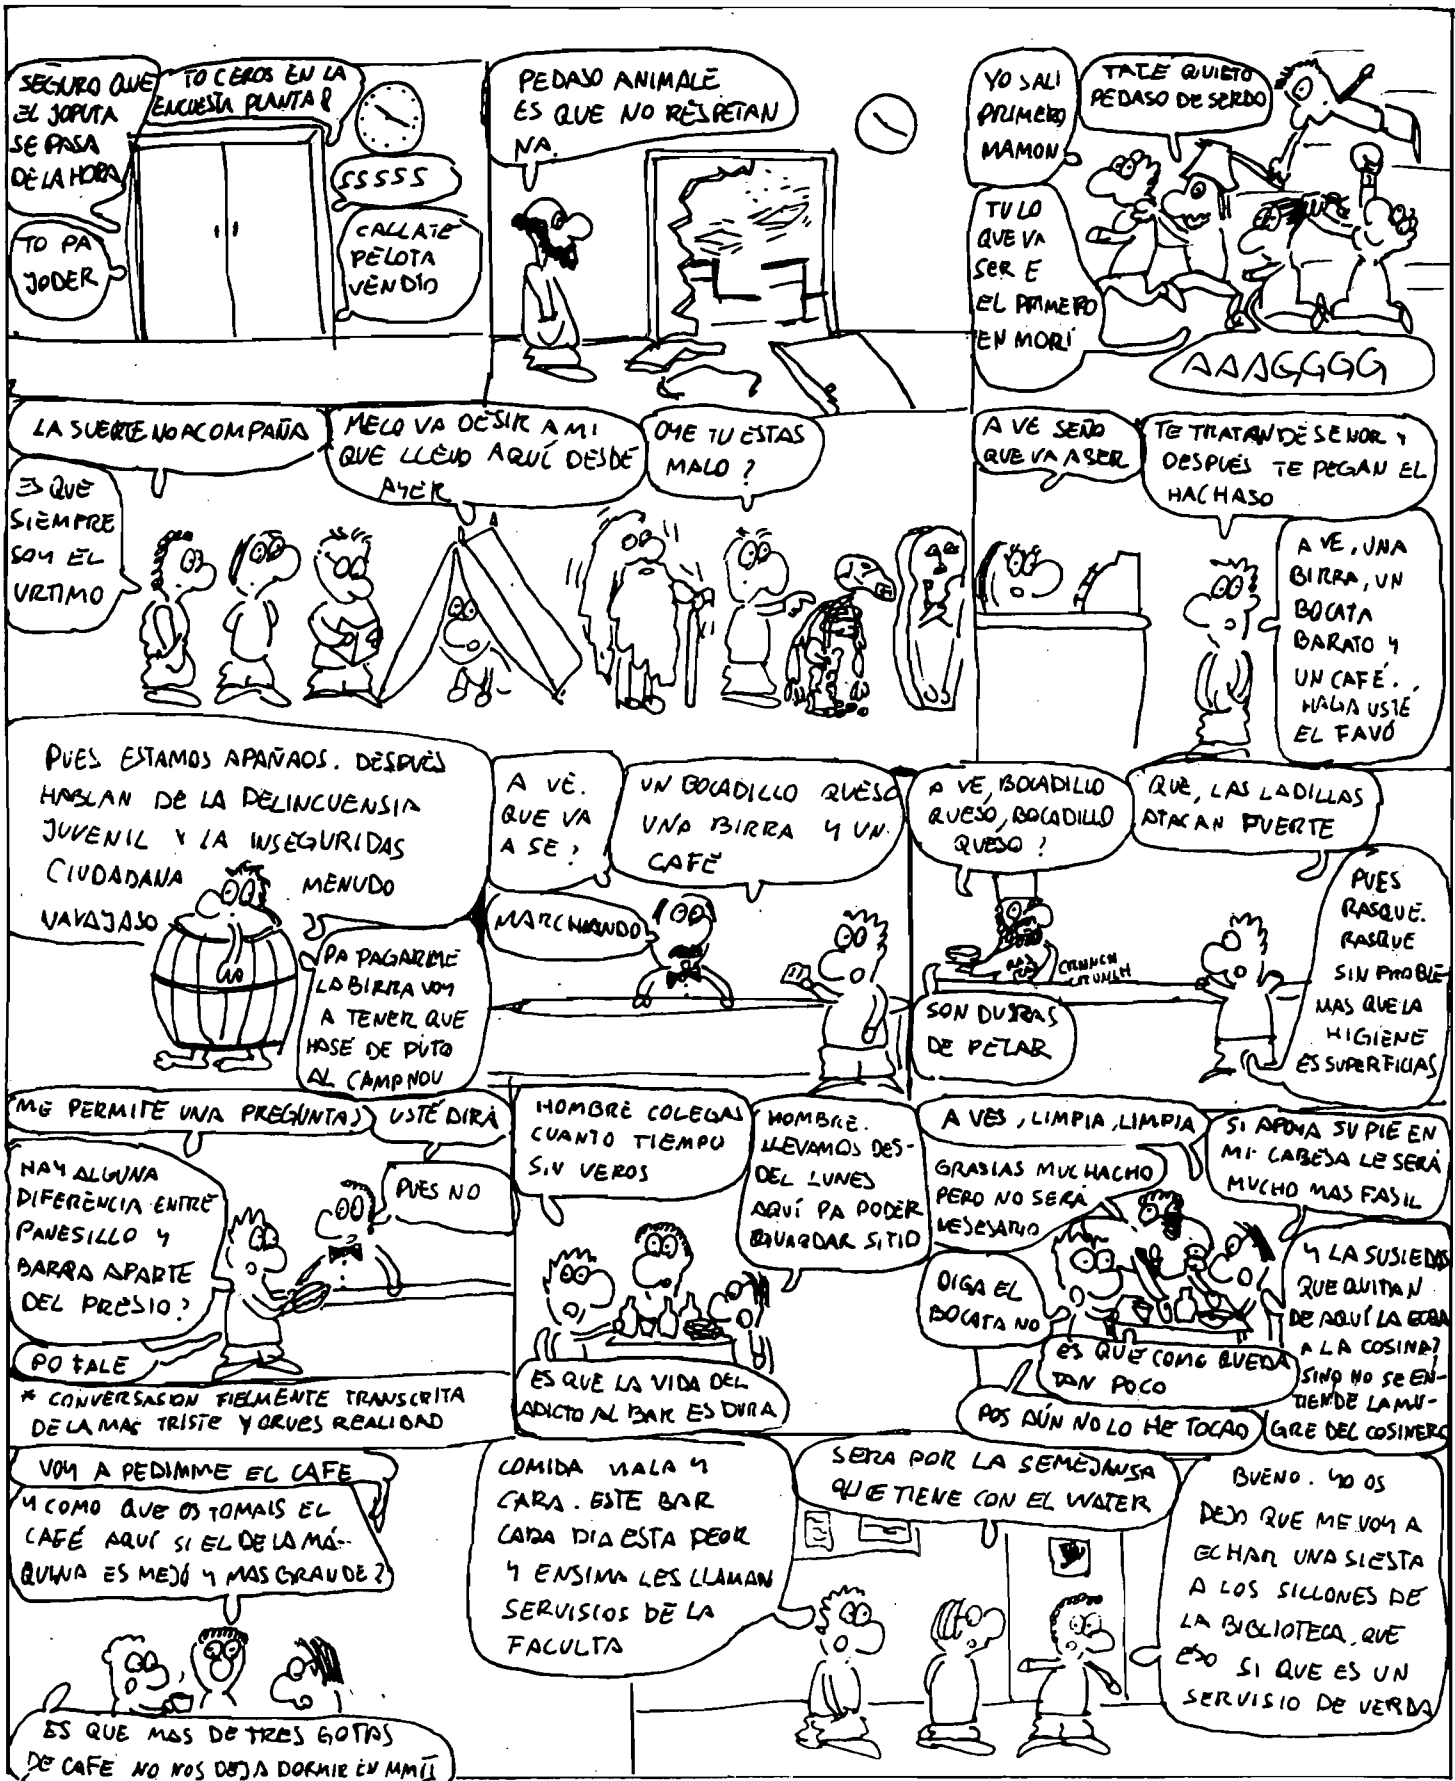 SEGURO QUE
EL JOPUTA
SE PASA
DE LA HORA
TO CEROS EN LA
ENCUESTA PLANTA 8
SSSSS
TO PA
JODER
CALLATE
PELOTA
VENDIO
PEDASO ANIMALE
ES QUE NO RESPETAN
NA.
YO SALI
PRIMERO
MAMON
TATE QUIETO
PEDASO DE SERDO
TU LO
QUE VA
SER E
EL PRIMERO
EN MORI
AAAGGGG
LA SUERTE NO ACOMPAÑA
ES QUE
SIEMPRE
SOY EL
URTIMO
MELO VA DESIR A MI
QUE LLEVO AQUÍ DESDE
AYER
OYE TU ESTAS
MALO?
A VE SEÑO
QUE VA A SER
TE TRATAN DE SENOR Y
DESPUES TE PEGAN EL
HACHASO
A VE, UNA
BIRRA, UN
BOCATA
BARATO Y
UN CAFÉ.
HAGA USTE
EL FAVÓ
PUES ESTAMOS APAÑAOS. DESPUES
HABLAN DE LA DELINCUENSIA
JUVENIL Y LA INSEGURIDAS
CIUDADANA MENUDO
NAVAJASO
PA PAGARME
LA BIRRA VOY
A TENER QUE
HASÉ DE PUTO
AL CAMP NOU
A VÉ.
QUE VA
A SE?
UN BOCADILLO QUESO
UNA BIRRA Y UN
CAFÉ
MARCHANDO
A VE, BOCADILLO
QUESO, BOCADILLO
QUESO?
QUE, LAS LADILLAS
ATACAN FUERTE
RAS
RAS
CRUNCH
CRUNCH
SON DURAS
DE PELAR
PUES
RASQUE.
RASQUE
SIN PROBLE
MAS QUE LA
HIGIENE
ES SUPERFICIAS
ME PERMITE UNA PREGUNTAS
USTÉ DIRÁ
HAY ALGUNA
DIFERENCIA ENTRE
PANESILLO Y
BARRA APARTE
DEL PRESIO?
PUES NO
PO FALE
* CONVERSACION FIELMENTE TRANSCRITA
DE LA MAS TRISTE Y CRUES REALIDAD
HOMBRE COLEGAS
CUANTO TIEMPO
SIN VEROS
HOMBRE.
LLEVAMOS DES-
DEL LUNES
AQUÍ PA PODER
GUARDAR SITIO
ES QUE LA VIDA DEL
ADICTO AL BAR ES DURA
A VES, LIMPIA, LIMPIA
GRASIAS MUCHACHO
PERO NO SERÁ
NESESARIO
SI APOYA SU PIE EN
MI CABESA LE SERÁ
MUCHO MAS FASIL
OIGA EL
BOCATA NO
ES QUE COMO QUEDA
TAN POCO
POS AÚN NO LO HE TOCAO
Y LA SUSIEDAS
QUE QUITAN
DE AQUÍ LA ECHA
A LA COSINA?
SINO NO SE EN-
TIENDE LA MU-
GRE DEL COSINERO
VOY A PEDIMME EL CAFE
Y COMO QUE OS TOMAIS EL
CAFÉ AQUÍ SI EL DE LA MÁ-
QUINA ES MEJÓ Y MAS GRANDE?
ES QUE MAS DE TRES GOTAS
DE CAFE NO NOS DEJA DORMIR EN MMII
COMIDA MALA Y
CARA. ESTE BAR
CADA DIA ESTA PEOR
Y ENSIMA LES LLAMAN
SERVISIOS DE LA
FACULTA
SERA POR LA SEMEJANSA
QUE TIENE CON EL WATER
BUENO. YO OS
DEJO QUE ME VOY A
ECHAR UNA SIESTA
A LOS SILLONES DE
LA BIBLIOTECA, QUE
ESO SI QUE ES UN
SERVISIO DE VERDA